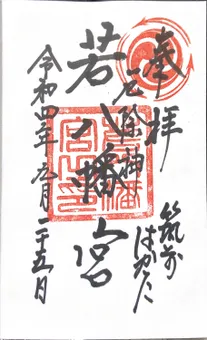 奉拝
筑前
はかた
厄除神
若八幡宮
令和四年 九月二十五日